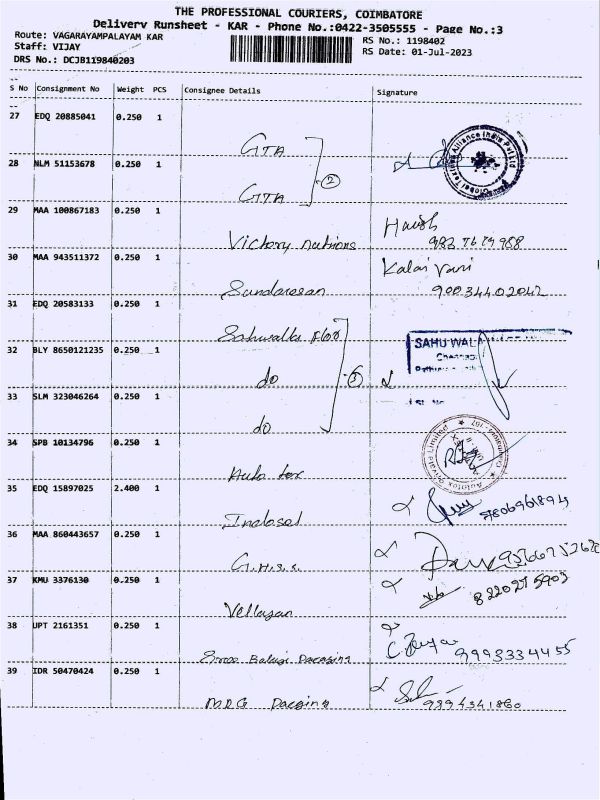 THE PROFESSIONAL COURIERS, COIMBATORE
Delivery Runsheet - KAR - Phone No.:0422-3505555 - Page No.:3
Route: VAGARAYAMPALAYAM KAR
RS No.: 1198402
Staff: VIJAY
RS Date: 01-Jul-2023
DRS No.: DCJB119840203
S No Consignment No Weight PCS Consignee Details Signature
27 EDQ 20885041 0.250 1
GTA
28 NLM 51153678 0.250 1
GTA
2
29 MAA 100867183 0.250 1
Victory nutrions
30 MAA 943511372 0.250 1
Kalai Vani
Sundaresan 90034402042
31 EDQ 20583133 0.250 1
32 BLY 8650121235 0.250 1
SAHU WAL
do
33 SLM 323046264 0.250 1
do
34 SPB 10134796 0.250 1
Auto tex
35 EDQ 15897025 2.400 1
36 MAA 860443657 0.250 1
37 KMU 3376130 0.250 1
8220275902
38 UPT 2161351 0.250 1
Sree Balaji Pacaging 9993334455
39 IDR 50470424 0.250 1
MRG Pacging 9394341860